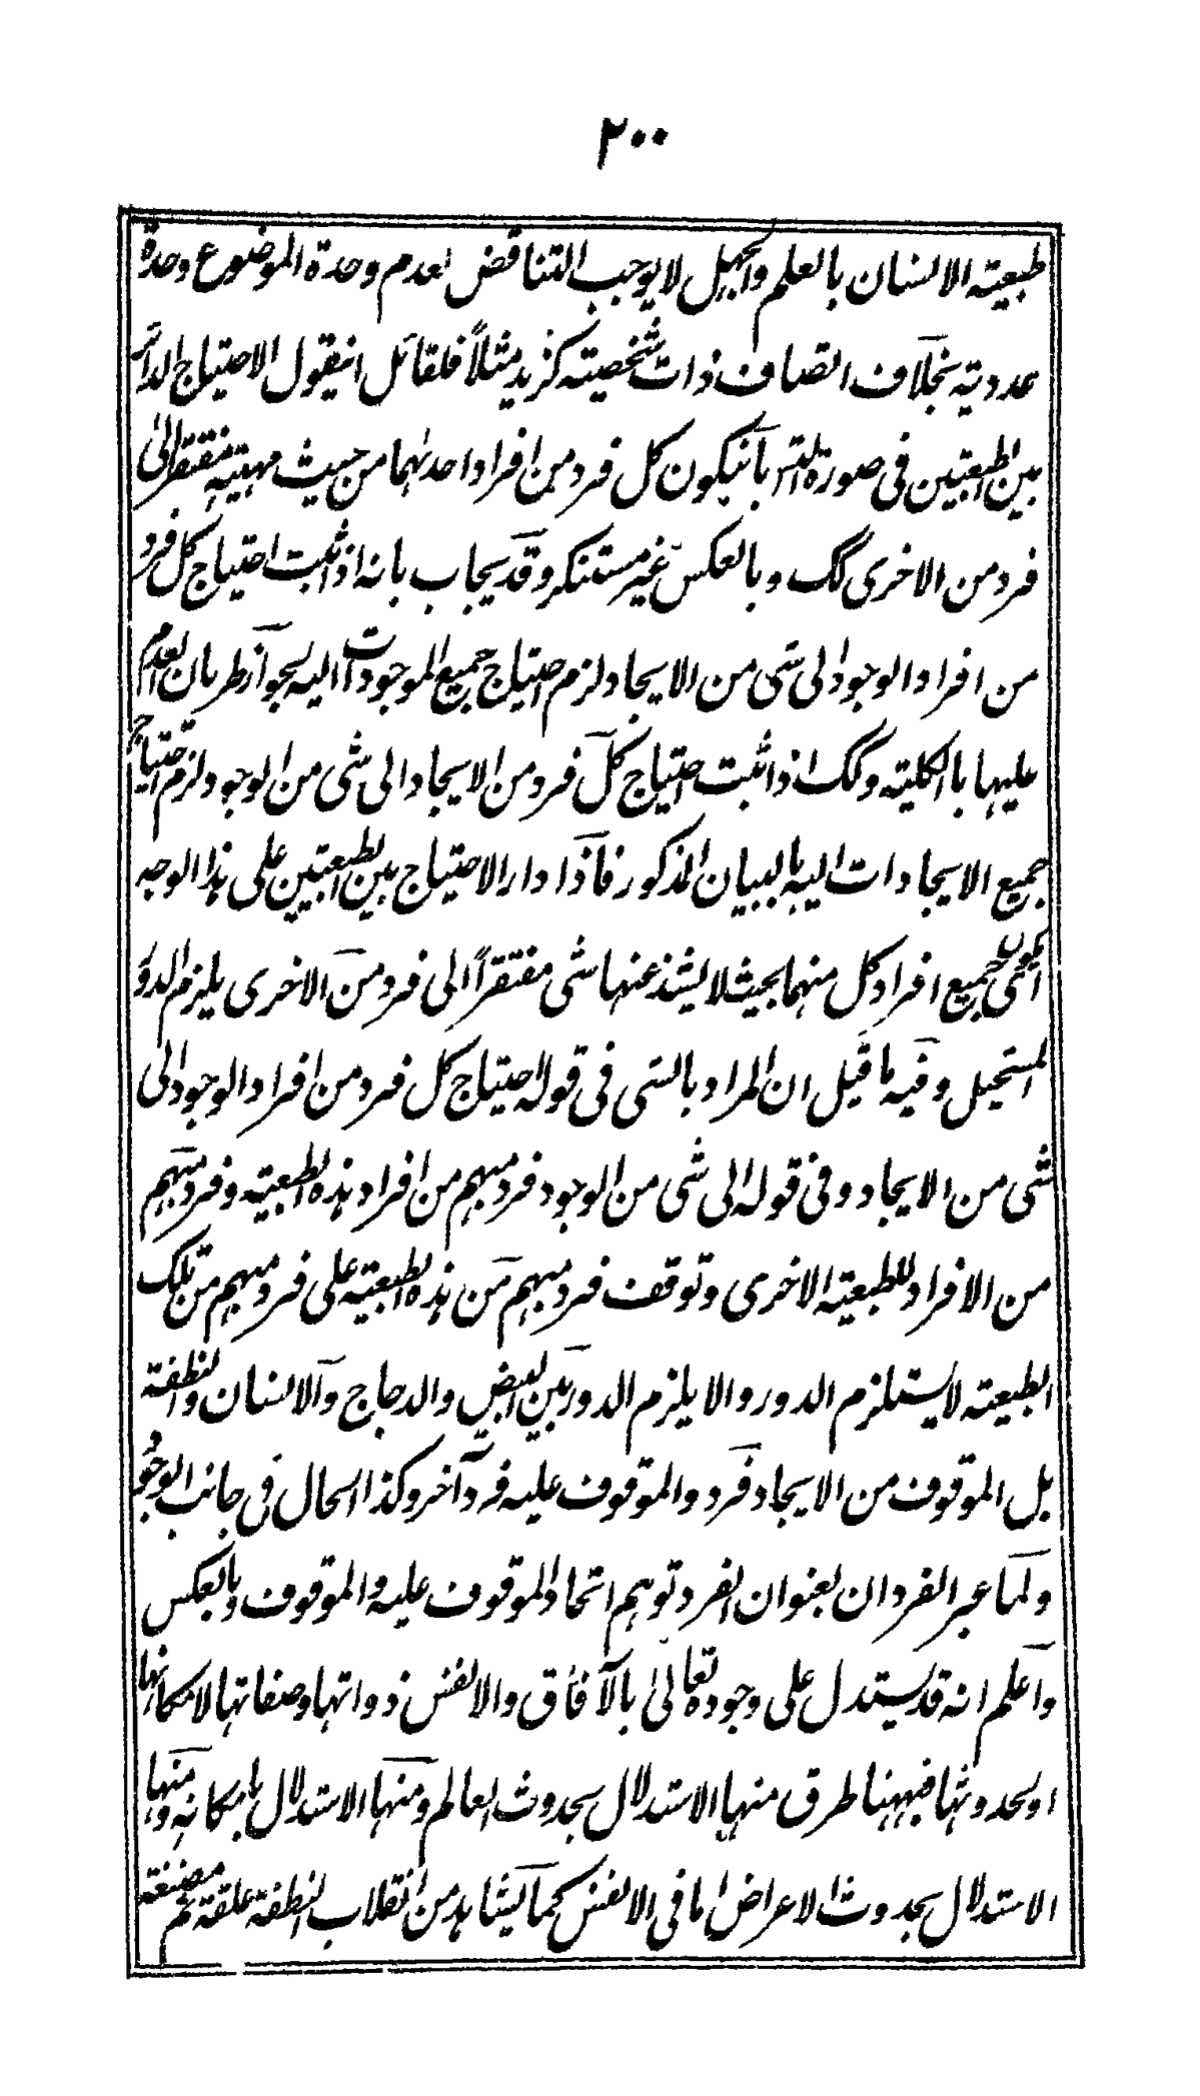 ٢٠٠
طبيعته الانسان بالعلم والجهل لا يوجب التناقض لعدم وحدة الموضوع وحدة
عددية بخلاف اتصاف ذات شخصيته كزيد مثلاً فلقائل انيقول الاحتياج الدائر
بين الطبعتين فى صورة التر بانيكون كل فرد من افراد احدلهما من حيث مهيته مفتقرا الى
فرد من الاخرى كك وبالعكس غير مستنكر وقد يجاب بانه اذا ثبت احتياج كل فرد
من افراد الوجود الى شى من الايجاد لزم احتياج جميع الموجودات اليه لجواز طريان العدم
عليها بالكلية وكك اذا ثبت احتياج كل فرد من الايجاد الى شى من الوجود لزم احتياج
جميع الايجادات اليه بالبيان المذكور فاذا دار الاحتياج بين الطبعتين على هذا الوجه
اى يكون جميع افراد كل منهما بحيث لا يشذ عنها شى مفتقراً الى فرد من الاخرى يلزم الدور
المستحيل وفيه ما قيل ان المراد بالشى فى قوله احتياج كل فرد من افراد الوجود الى
شى من الايجاد وفى قوله الى شى من الوجود فرد مبهم من افراد هذه الطبعية وفرد مبهم
من الافراد للطبعية الاخرى وتوقف فرد مبهم من هذه الطبعية على فرد مبهم من تلك
الطبيعته لا يستلزم الدور والا يلزم الدور بين البيض والدجاج والانسان والنطفة
بل الموقوف من الايجاد فرد والموقوف عليه فرد آخر وكذا الحال فى جانب الوجود
ولما عبر الفردان بعنوان الفرد توهم اتحاد الموقوف عليه والموقوف وبالعكس
واعلم انه قد يستدل على وجوده تعالى بالآفاق والانفس ذواتها وصفاتها لامكانها
او لحدوثها فههنا طرق منها الاستدلال بحدوث العالم ومنها الاستدلال بامكانه ومنها
الاستدلال بحدوث الاعراض اما فى الانفس كما يشاهد من انقلاب النطفة علقة ثم مضغة